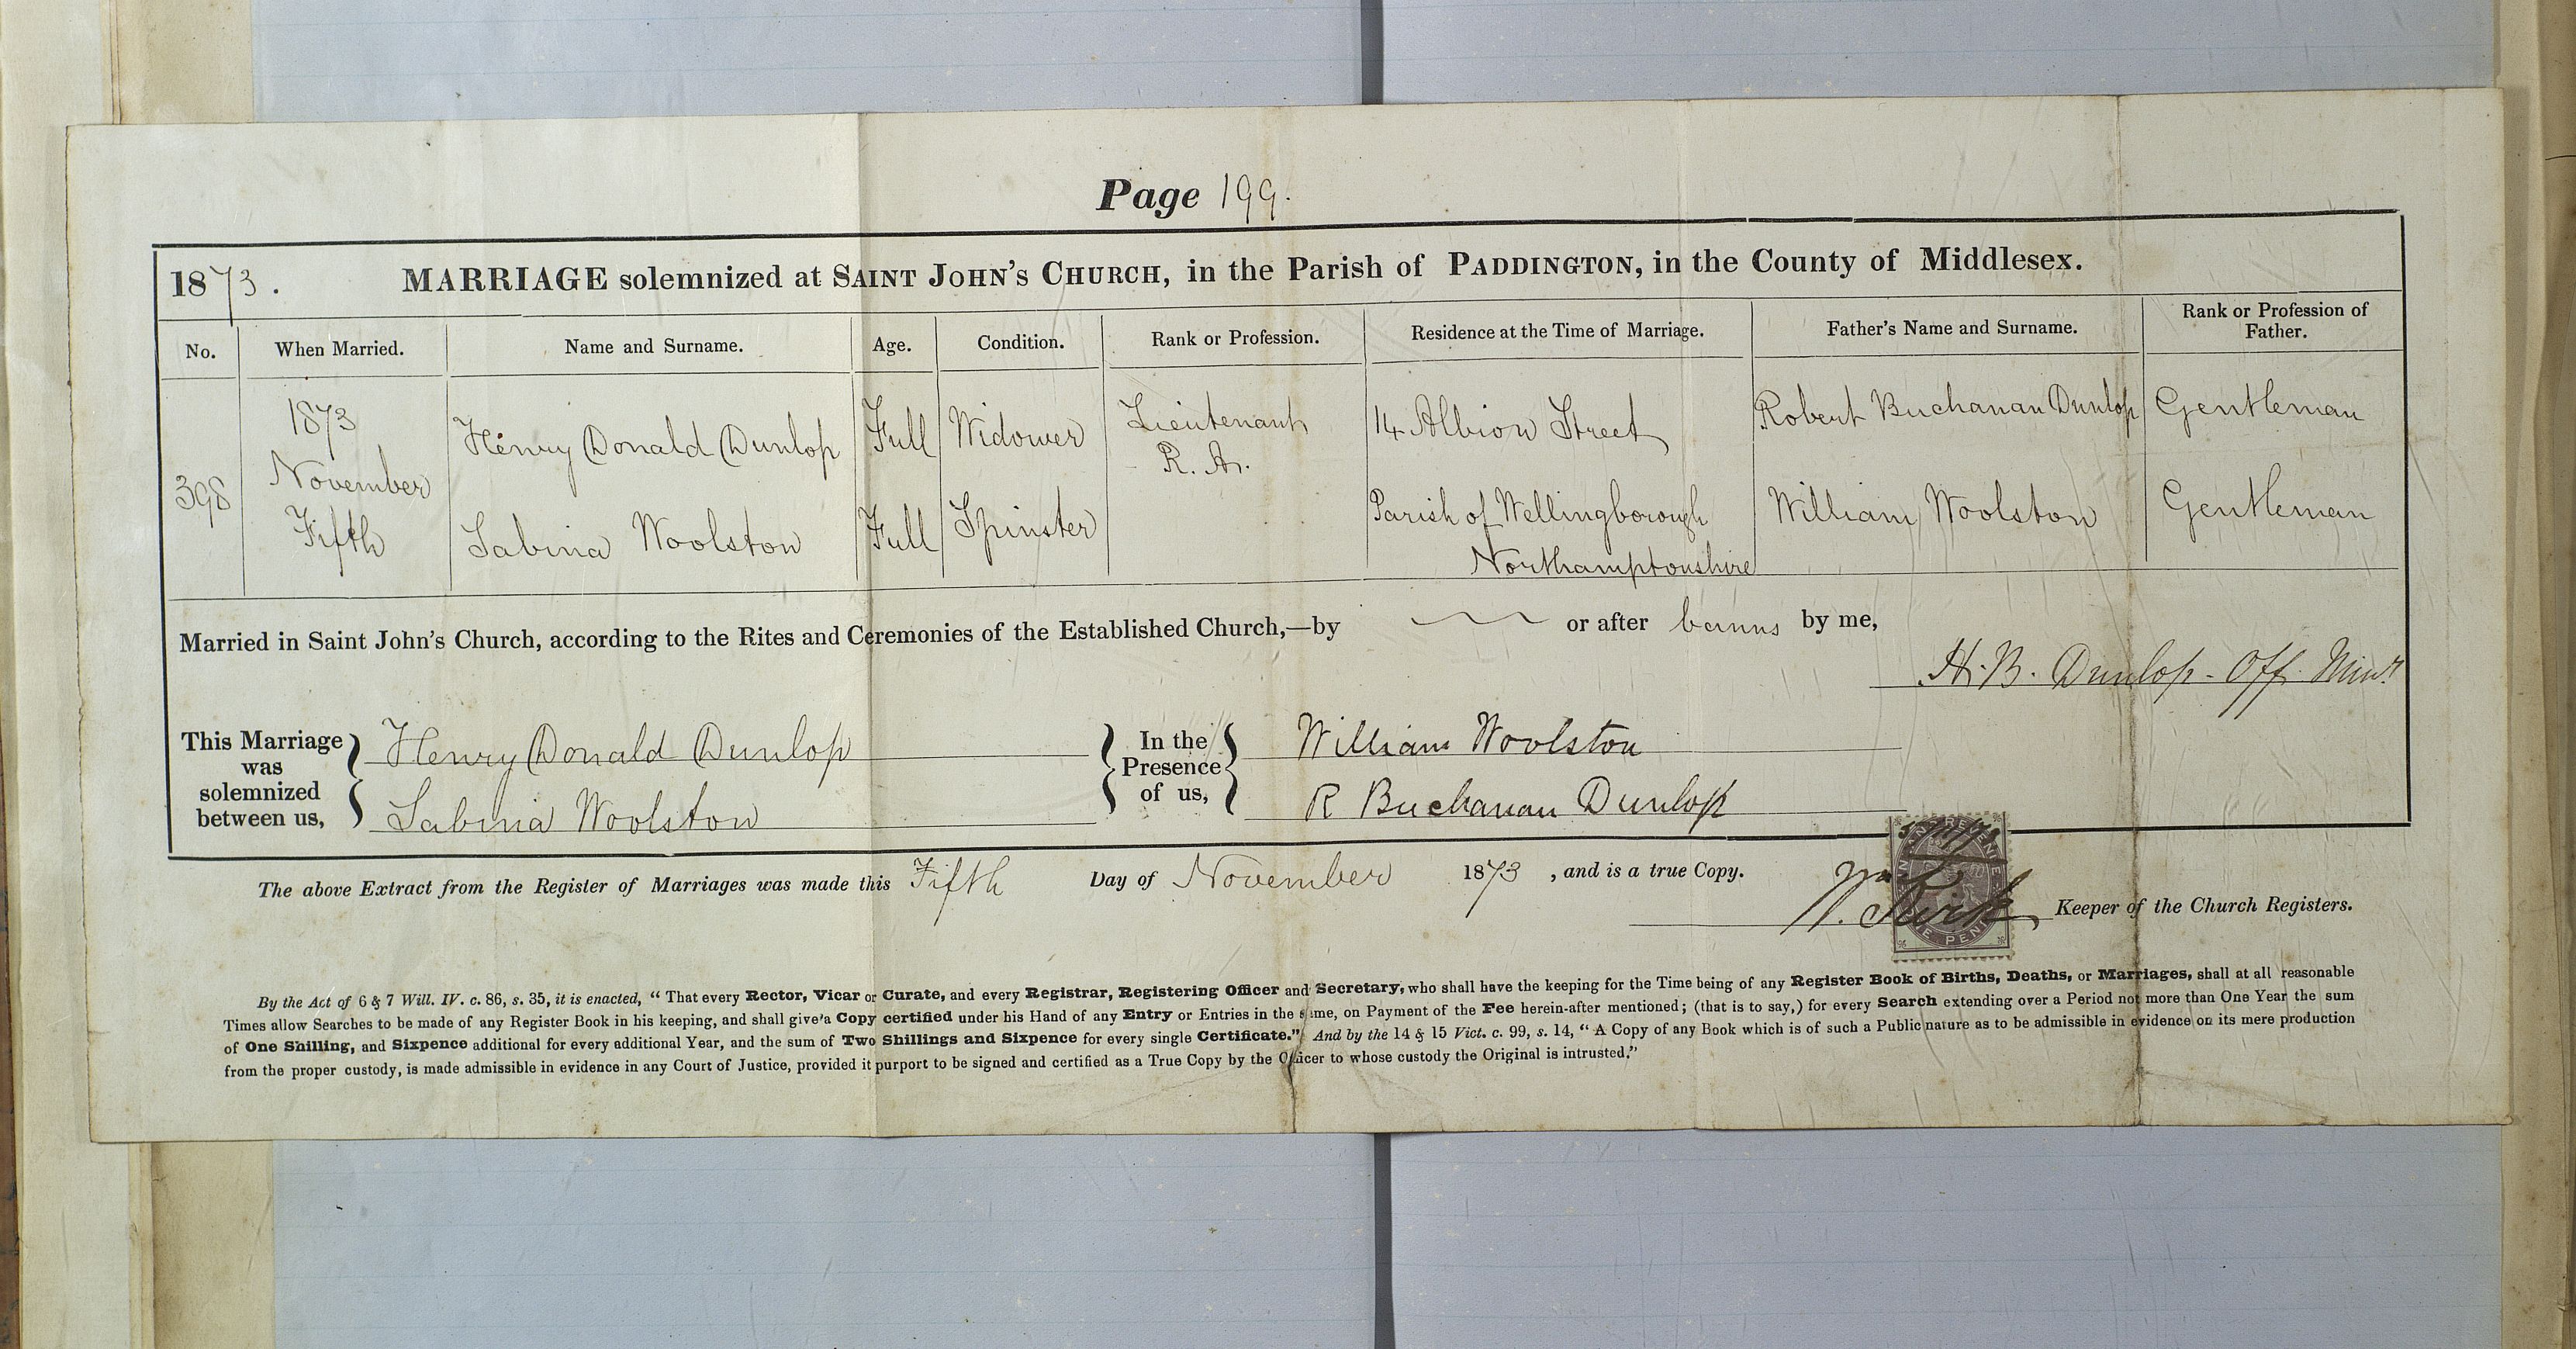 Page 199.
1873. MARRIAGE solemnized at SAINT JOHN'S CHURCH, in the Parish of PADDINGTON, in the County of Middlesex.
No. When Married. Name and Surname. Age. Condition. Rank or Profession. Residence at the Time of Marriage. Father's Name and Surname. Rank or Profession of Father.
398 1873 November Fifth
Henry Donald Dunlop Full Widower Lieutenant R. A. 14 Albion Street Robert Buchanan Dunlop Gentleman
Sabina Woolston Full Spinster Parish of Wellingborough Northamptonshire William Woolston Gentleman
Married in Saint John's Church, according to the Rites and Ceremonies of the Established Church,—by or after banns by me,
H. B. Dunlop - Off. Minr
This Marriage was solemnized between us,
Henry Donald Dunlop
Sabina Woolston
In the Presence of us,
William Woolston
R Buchanan Dunlop
The above Extract from the Register of Marriages was made this Fifth Day of November 1873, and is a true Copy.
Keeper of the Church Registers.
By the Act of 6 & 7 Will. IV. c. 86, s. 35, it is enacted, "That every Rector, Vicar or Curate, and every Registrar, Registering Officer and Secretary, who shall have the keeping for the Time being of any Register Book of Births, Deaths, or Marriages, shall at all reasonable
Times allow Searches to be made of any Register Book in his keeping, and shall give a Copy certified under his Hand of any Entry or Entries in the same, on Payment of the Fee herein-after mentioned; (that is to say,) for every Search extending over a Period not more than One Year the sum
of One Shilling, and Sixpence additional for every additional Year, and the sum of Two Shillings and Sixpence for every single Certificate." And by the 14 & 15 Vict. c. 99, s. 14, "A Copy of any Book which is of such a Public nature as to be admissible in evidence on its mere production
from the proper custody, is made admissible in evidence in any Court of Justice, provided it purport to be signed and certified as a True Copy by the Officer to whose custody the Original is intrusted."